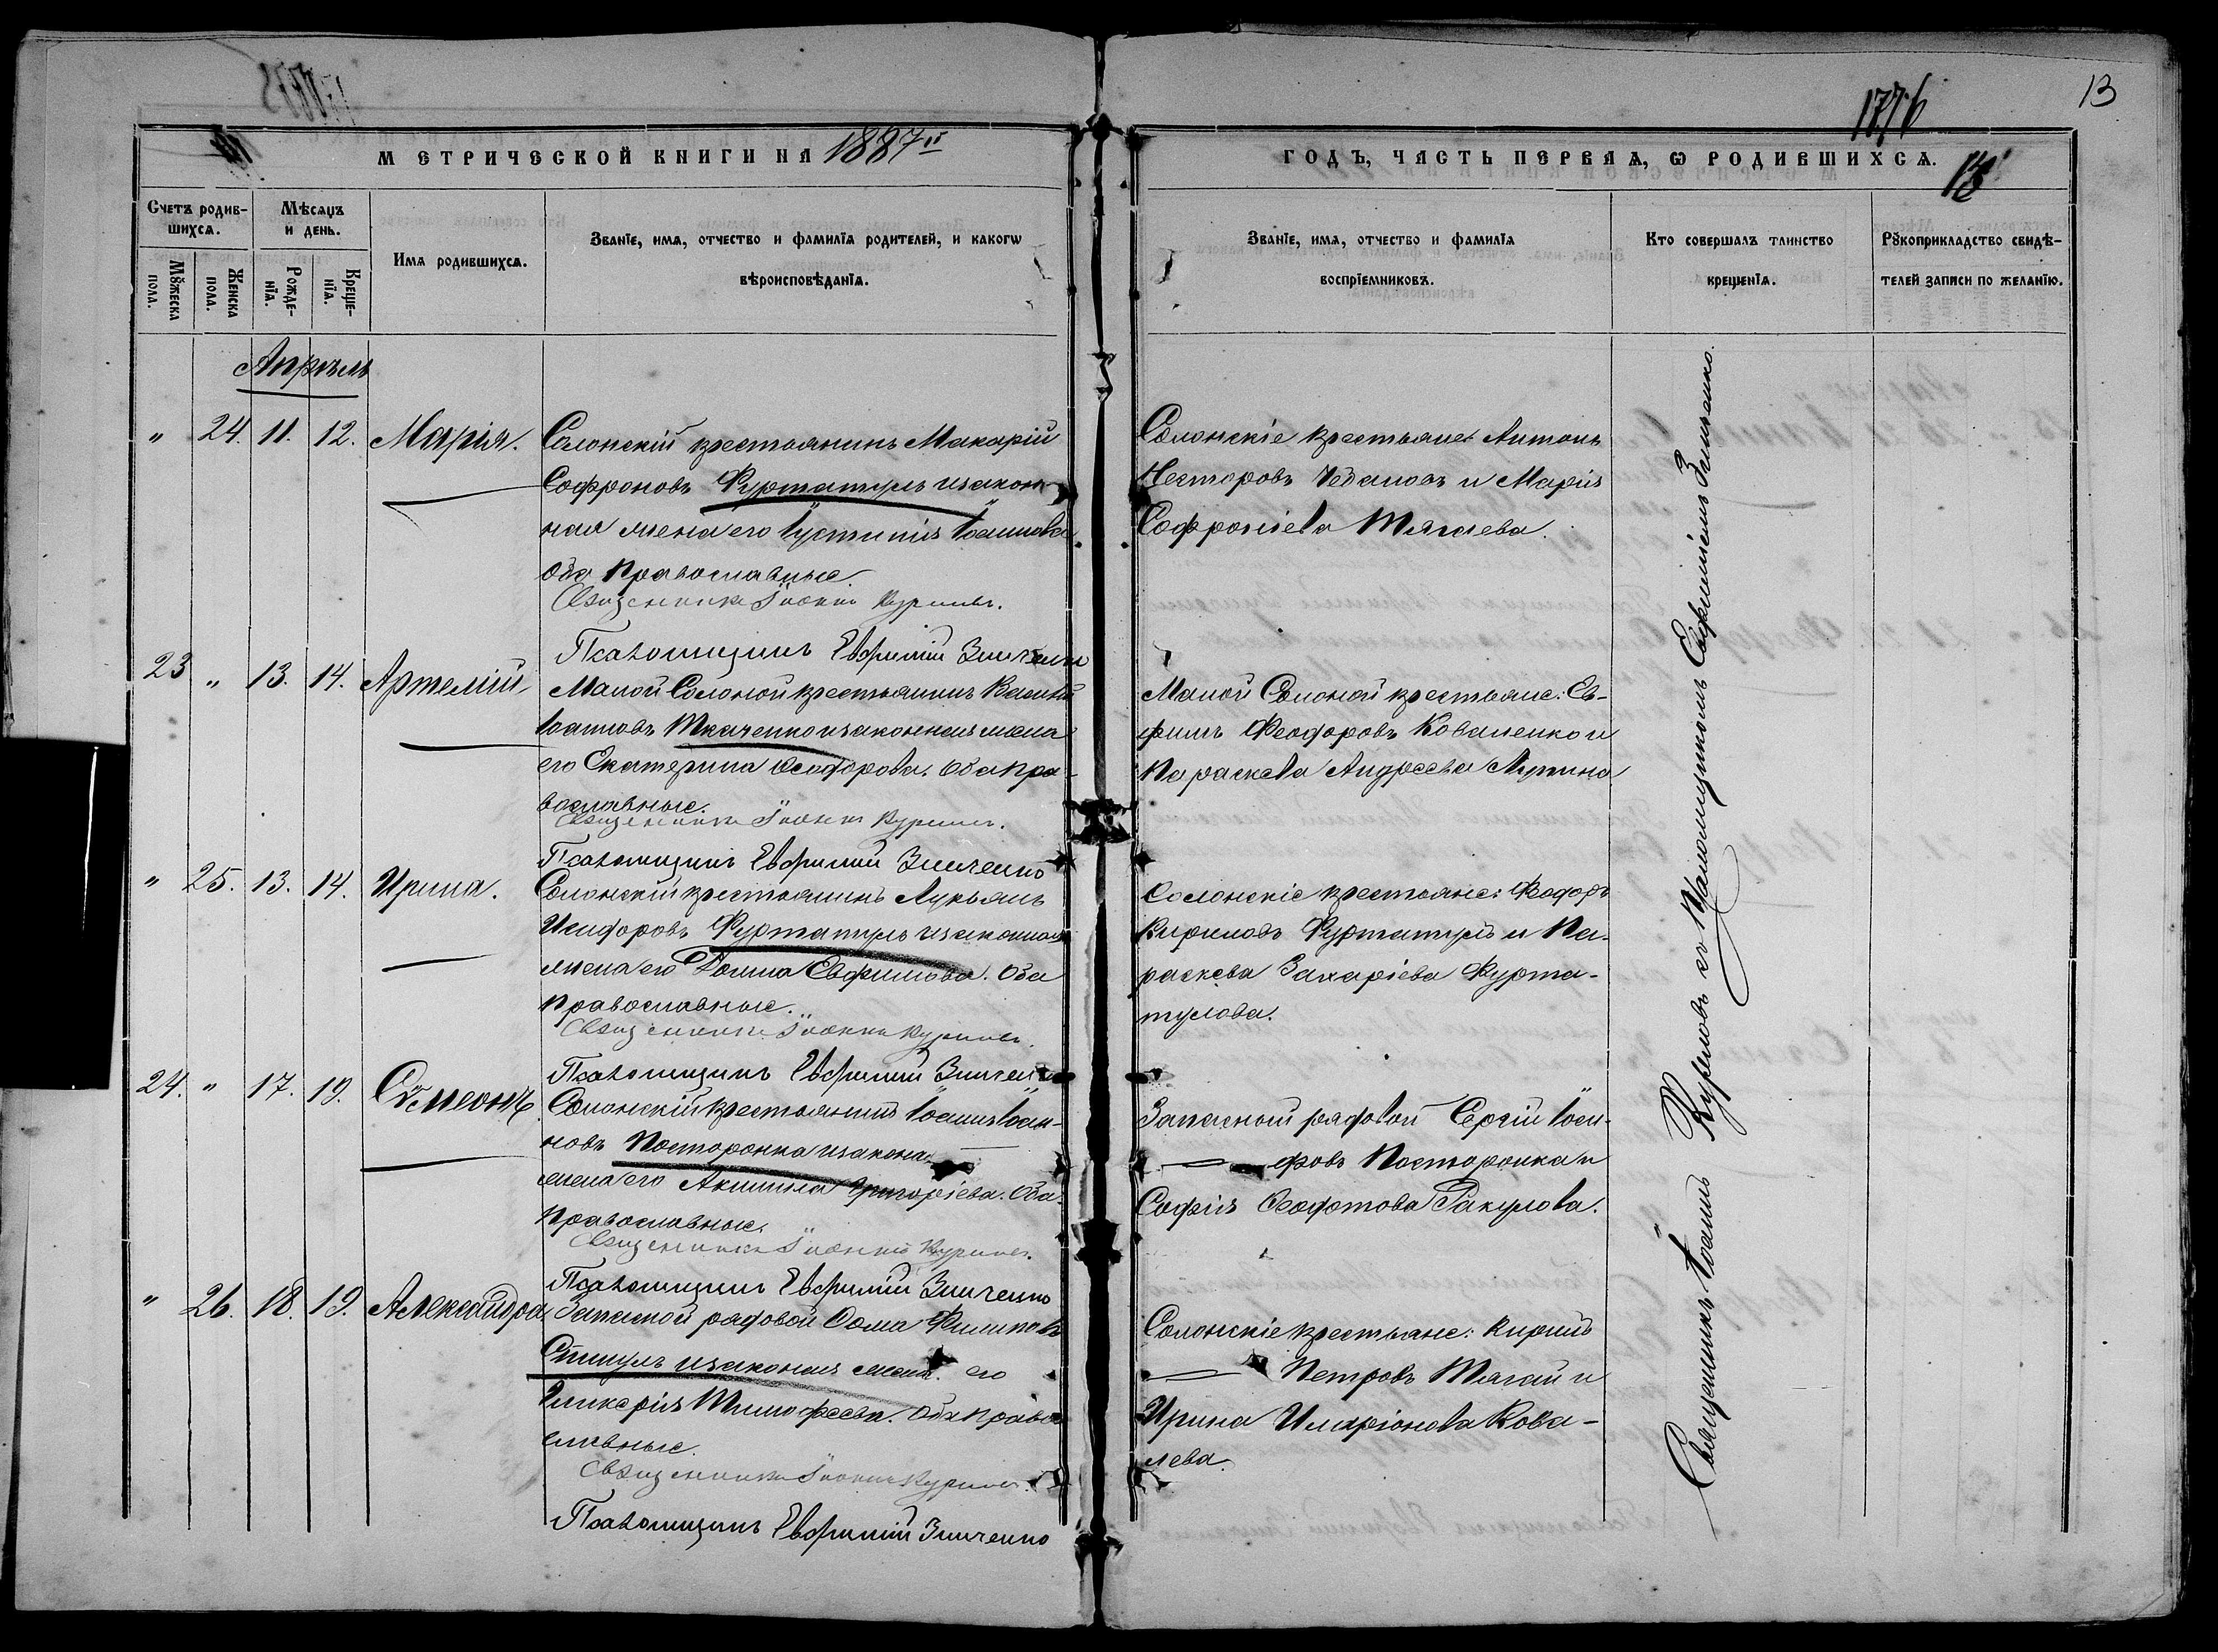 13
1776
МЕТРИЧЕСКОЙ КНИГИ НА 1887й
ГОДЪ, ЧАСТЬ ПЕРВАЯ, Ѡ РОДИВШИХСЯ.
13
Счетъ родив-
шихся.
Мѣсяцъ
и день.
Мꙋжеска
пола.
Женска
пола.
Рожде-
нія.
Креще-
нія.
Имя родившихся.
Званіе, имя, отчество и фамилія родителей, и какогѡ
вѣроисповѣданія.
Званіе, имя, отчество и фамилія
воспріемниковъ.
Кто совершалъ таинство
крещенія.
Рꙋкоприкладство свидѣ-
телей записи по желанію.
Апрѣль
" 24. 11. 12. Марія.
Солонскій крестьянинъ Макарій
Софроновъ Фуртатулъ изакон
ная жена его Іустинія Іоаннова
Оба православные.
Священникъ Іоаннъ Куриловъ.
Псаломщикъ Евфимій Зинченко
Солонскіе крестьяне Антонъ
Несторовъ Чебановъ и Марія
Софроніева Тягаева.
23 " 13. 14. Артемій
Малой Солоной крестьянинъ Василій
Іоанновъ Ткаченко изаконная жена
его Екатерина Ѳеодорова. Оба пра-
вославные.
Священникъ Іоаннъ Куриловъ.
Псаломщикъ Евфимій Зинченко
Малой Солоной крестьяне: Ев-
фимъ Феодоровъ Коваленко и
Параскева Андреева Лупина
" 25. 13. 14. Ирина.
Солонскій крестьянинъ Лукьянъ
Исидоровъ Фуртатулъ изаконная
жена его Домна Евфимова. Оба
православные.
Священникъ Іоаннъ Куриловъ.
Псаломщикъ Евфимій Зинченко
Солонскіе крестьяне: Феодоръ
Кириловъ Фуртатулъ и Па-
раскева Захаріева Фурта-
тулова.
24. " 17. 19. Сѵмеонъ
Солонскій крестьянинъ Іоаннъ Іоан-
новъ Посторонка изаконная
жена его Акилина Григоріева. Оба
православные.
Священникъ Іоаннъ Куриловъ.
Псаломщикъ Евфимій Зинченко
Запасной рядовой Сергій Іоси-
фовъ Посторонка и
Софія Ѳеодотова Ракулова.
" 26. 18. 19. Александра
Запасной рядовой Ѳома Филиповъ
изаконная жена его
Гликерія Тимофеева. Оба право
славные.
Священникъ Іоаннъ Куриловъ.
Псаломщикъ Евфимій Зинченко
Солонскіе крестьяне: Кирилъ
Петровъ Тягай и
Ирина Иларіонова Кова-
лева.
Священникъ Іоаннъ Куриловъ съ Псаломщикомъ Евфиміемъ Зинченко.